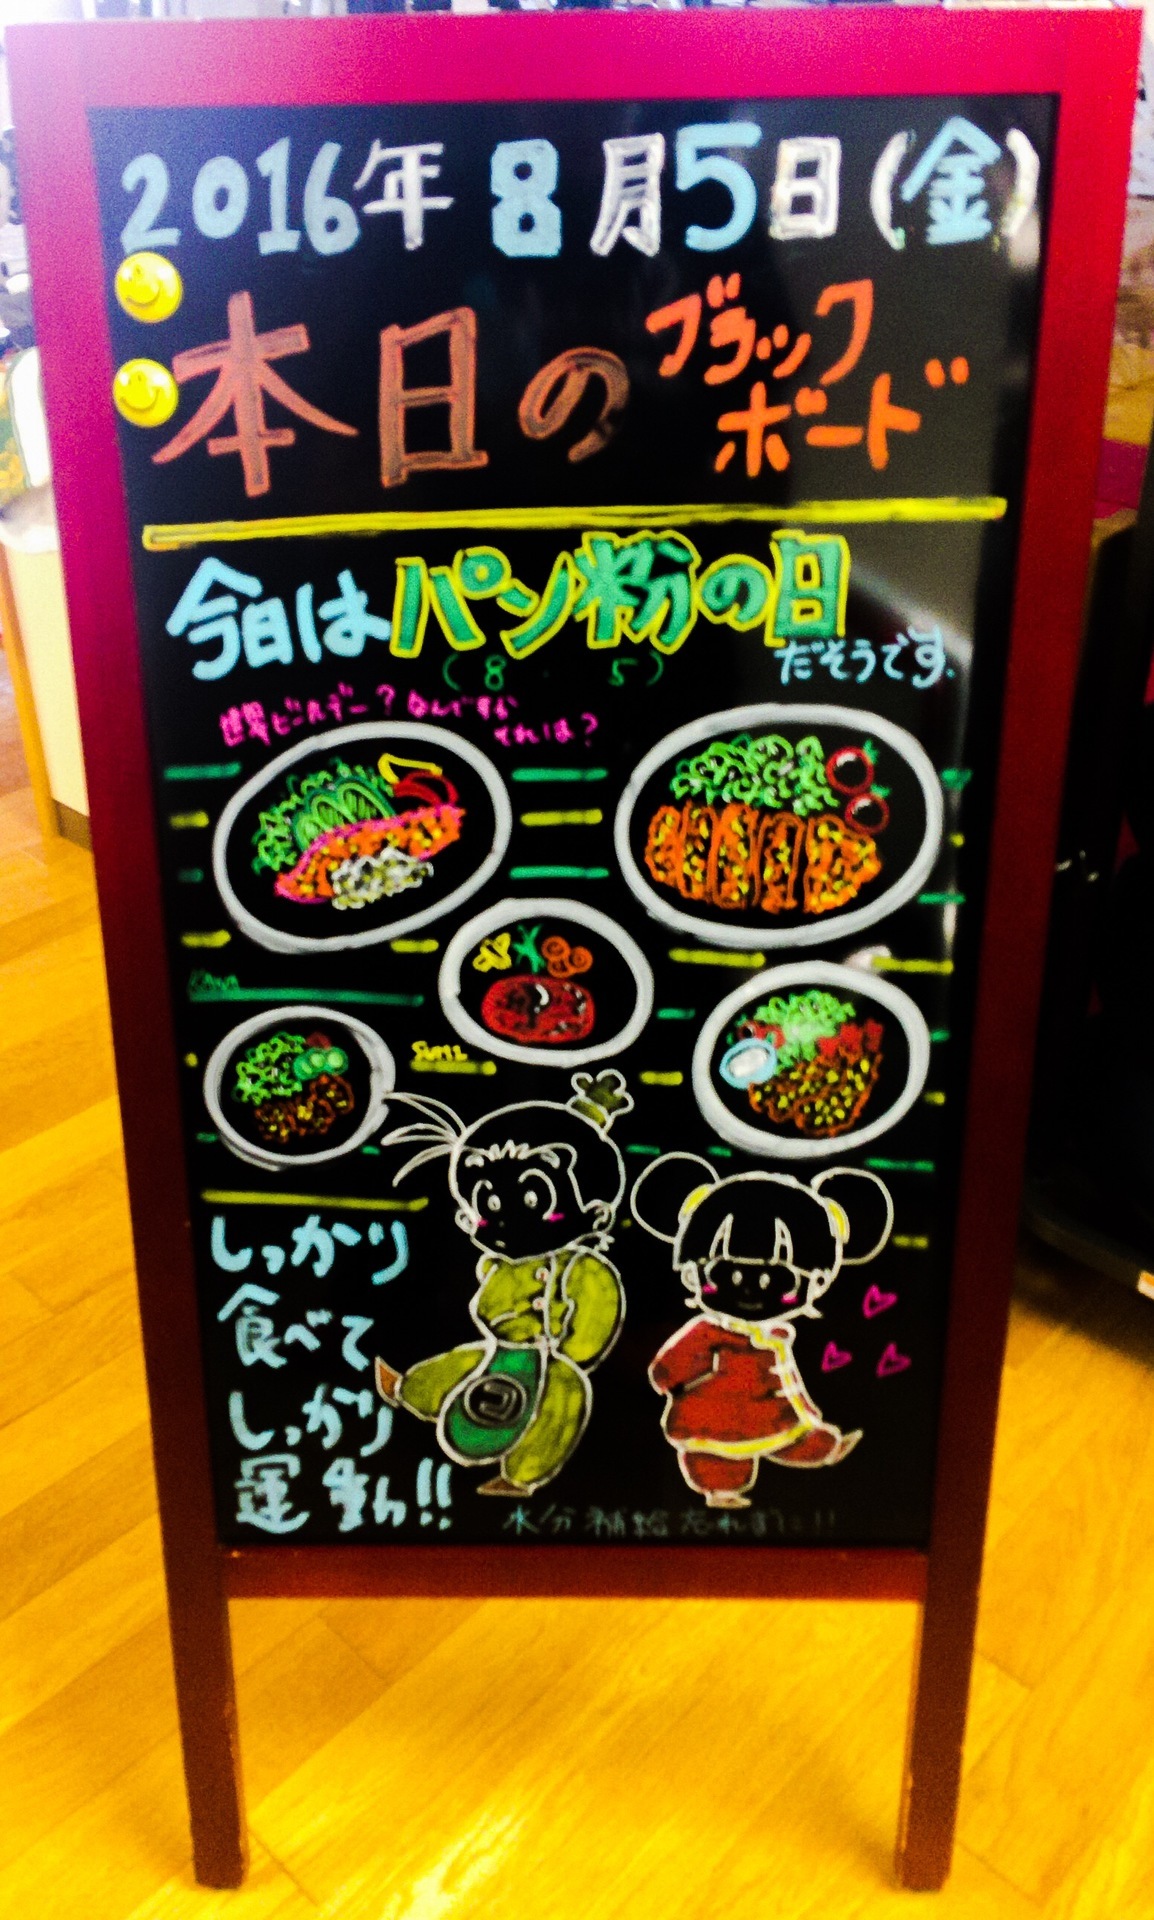 2016年8月5日(金)
本日のブラック
ボード
今日はパン粉の日
(8 5)
だそうです.
世界ビールデー?なんですか
それは?
しっかり
食べて
しっかり
運動!!
水分補給忘れずに!!